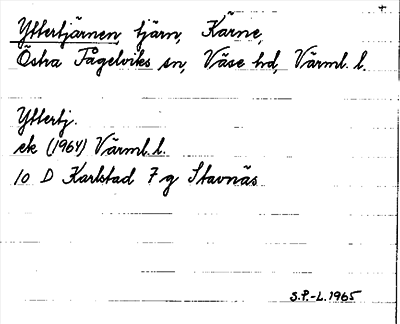 Yttertjärnen, tjärn, Kärne,
Östra Fågelviks sn, Väse hd, Värml. l.
Yttertj.
ek (1964) Värml. l.
10 D Karlstad 7 g Stavnäs
S.P.-L. 1965